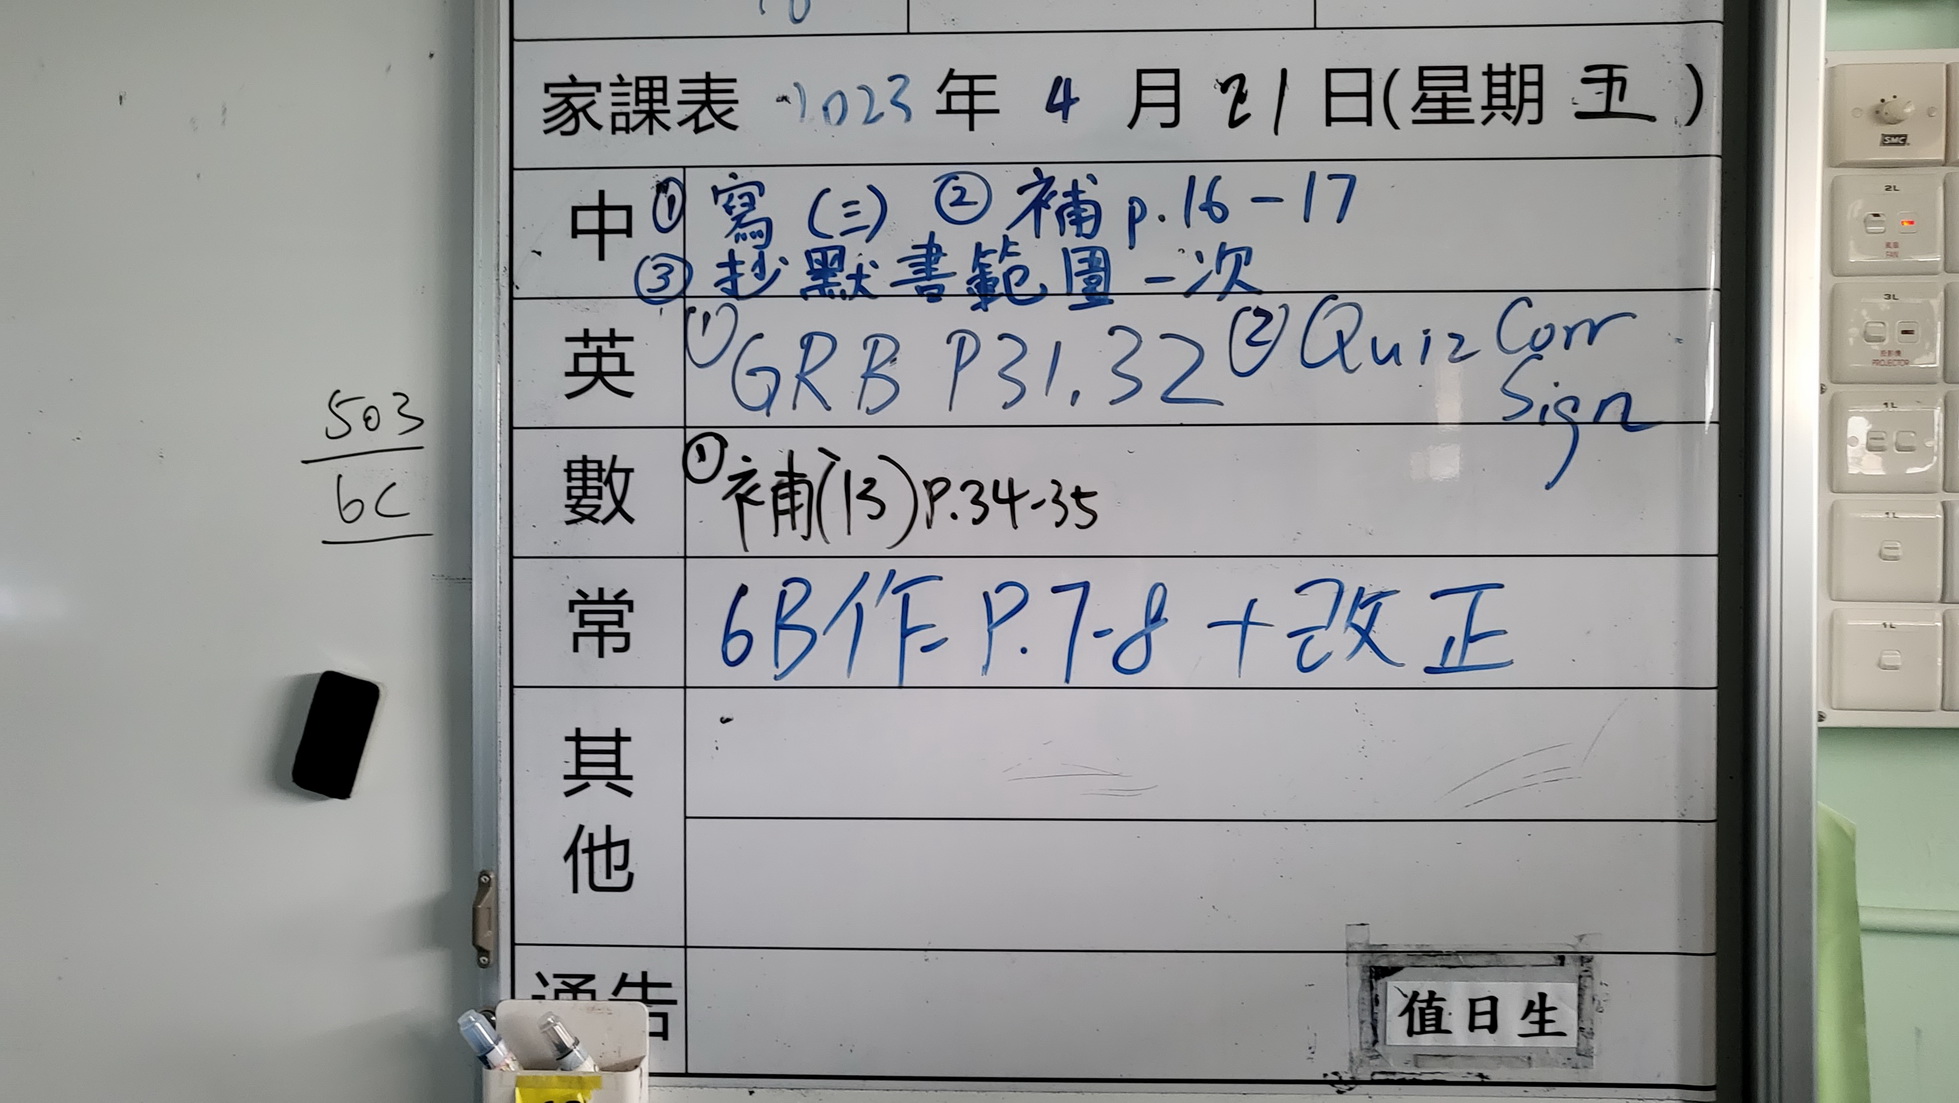 家課表 2023年 4 月 21 日(星期 五 )
中 ① 寫 (三) ② 補 p.16-17
③ 抄默書範圍一次
英 ① GRB P31.32 ② Quiz Corr
Sign
數 ① 補(13) P.34-35
常 6B作 P.7-8 + 改正
其他
通告
值日生
503
6C
SMC
2L
風扇
FAN
3L
投影機
PROJECTOR
1L
1L
1L